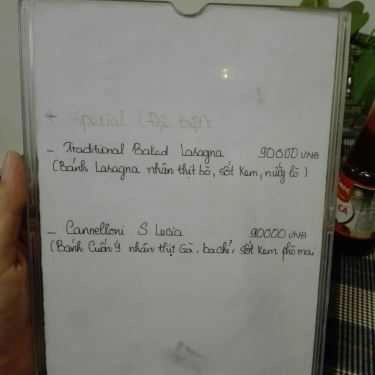 + Special (Đặc Biệt)
- Traditional Baked Lasagna 90000 VNĐ
(Bánh Lasagna nhân thịt bò, sốt Kem, nướng lò)
- Cannelloni S Lucia 90000 VNĐ
(Bánh Cuốn Ý nhân thịt Gà, bachỉ, sốt Kem phô mai